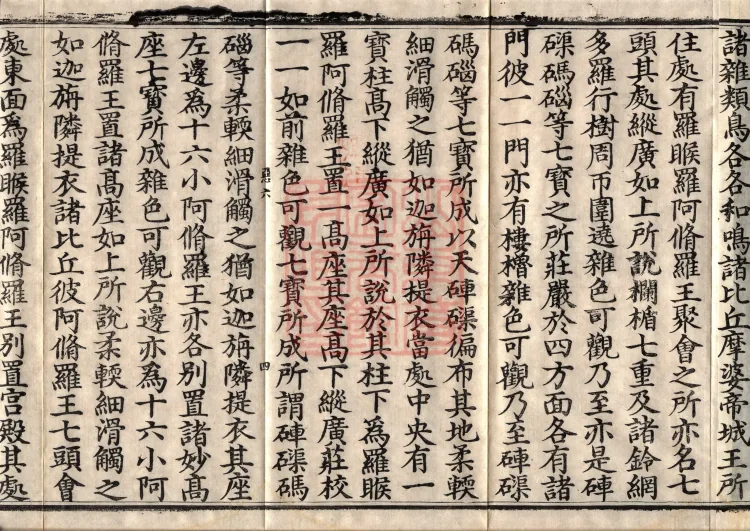 諸雜類鳥各各和鳴諸比丘摩婆帝城王所
住處有羅睺羅阿脩羅王聚會之所亦名七
頭其處縱廣如上所說欄楯七重及諸鈴網
多羅行樹周帀圍遶雜色可觀乃至亦是硨
磲碼碯等七寶之所莊嚴於四方面各有諸
門彼一一門亦有樓櫓雜色可觀乃至硨磲
碼碯等七寶所成以天硨磲徧布其地柔輭
細滑觸之猶如迦旃隣提衣當處中央有一
寶柱高下縱廣如上所說於其柱下為羅睺
羅阿脩羅王置一高座其座高下縱廣莊校
一一如前雜色可觀七寶所成所謂硨磲碼
惡六
四
碯等柔輭細滑觸之猶如迦旃隣提衣其座
左邊為十六小阿脩羅王亦各別置諸妙高
座七寶所成雜色可觀右邊亦為十六小阿
脩羅王置諸高座如上所說柔輭細滑觸之
如迦旃隣提衣諸比丘彼阿脩羅王七頭會
處東面為羅睺羅阿脩羅王別置宮殿其處